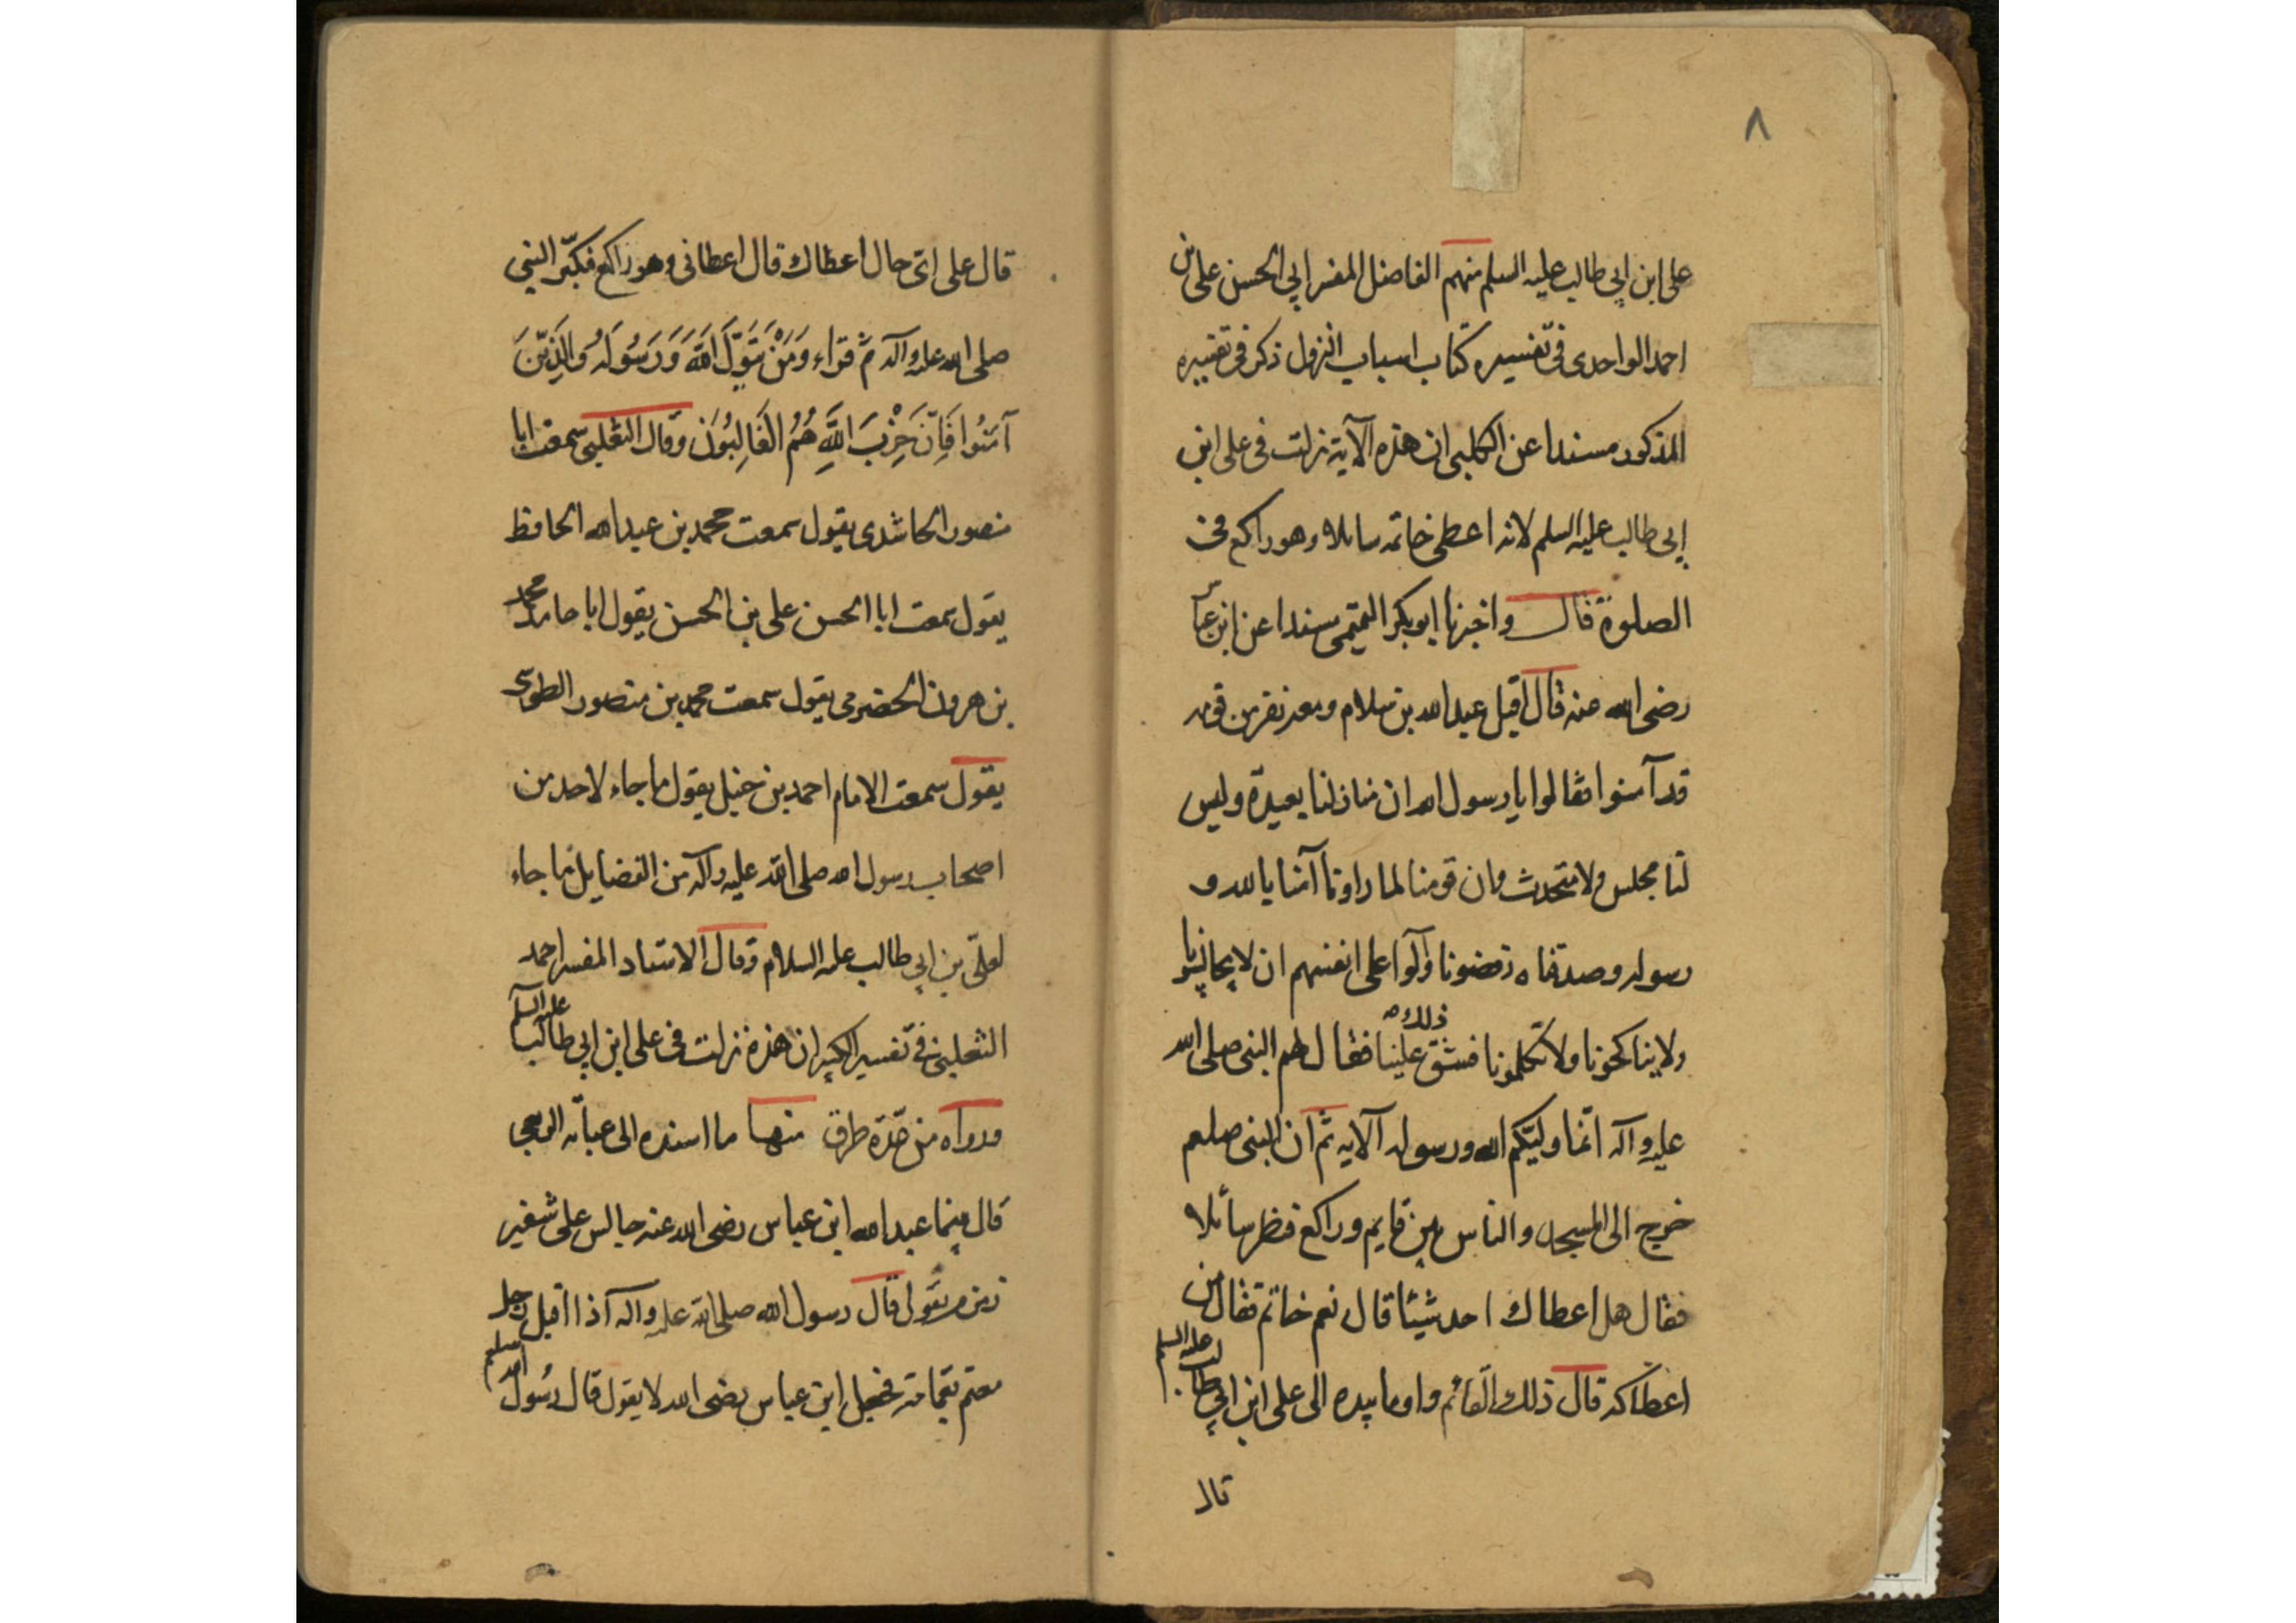 ٨
على ابن ابى طالب عليه السلم منهم الفاضل المفسر ابي الحسن على بن
احمد الواحدى فى تفسيره كتاب اسباب النزول ذكر فى تفسيره
المذكور مسندا عن الكلبى ان هذه الآية نزلت فى على ابن
ابى طالب عليه السلم لانه اعطى خاتمه سائلا وهو راكع فى
الصلوة قال واخبرنا ابو بكر التميمى مسندا عن ابن عباس
رضى الله عنه قال اقبل عبد الله بن سلام ومعه نفر من قومه
قد آمنوا فقالوا يا رسول الله ان منازلنا بعيدة وليس
لنا مجلس ولا متحدث وان قومنا لما راونا آمنا بالله و
رسوله وصدقناه رفضونا وآلوا على انفسهم ان لا يجالسونا
ولا يناكحونا ولا تكلمونا فشق ذلك علينا فقال لهم النبى صلى الله
عليه وآله انما وليكم الله ورسوله الآيه ثم ان النبى صلعم
خرج الى المسجد والناس بين قايم وراكع فنظر سائلا
فقال هل اعطاك احد شيئا قال نعم خاتم فقال من
اعطاكه قال ذلك القائم واوما بيده الى على ابن ابي طالب عليه السلم
قال
قال على اى حال اعطاك قال اعطانى وهو راكع فكبّر النبى
صلى الله عليه وآله ثم قراء وَمَنْ يَتَوَلَّ اللَّهَ وَرَسُولَهُ وَالَّذِينَ
آمَنُوا فَإِنَّ حِزْبَ اللَّهِ هُمُ الْغَالِبُونَ وقال الثعلبى سمعت ابا
منصور الحاشدى يقول سمعت محمد بن عبد الله الحافظ
يقول سمعت ابا الحسن على بن الحسن يقول ابا حامد محمد
بن هرون الحضرمى يقول سمعت محمد بن منصور الطوسى
يقول سمعت الامام احمد بن حنبل يقول ما جاء لاحد من
اصحاب رسول الله صلى الله عليه وآله من الفضايل ما جاء
لعلىّ بن ابي طالب عليه السلام وقال الاستاد المفسر احمد
الثعلبى فى تفسير الكبير ان هذه نزلت فى على ابن ابي طالب عليه السلم
ورواه من عدّة طرق منها ما اسنده الى عباية الربعى
قال بينما عبد الله ابن عباس رضى الله عنه جالس على شفير
زمزم يقول قال رسول الله صلى الله عليه وآله اذا اقبل رجل
معتم بعمامة فجعل ابن عباس رضى الله لا يقول قال رسول الله صلعم